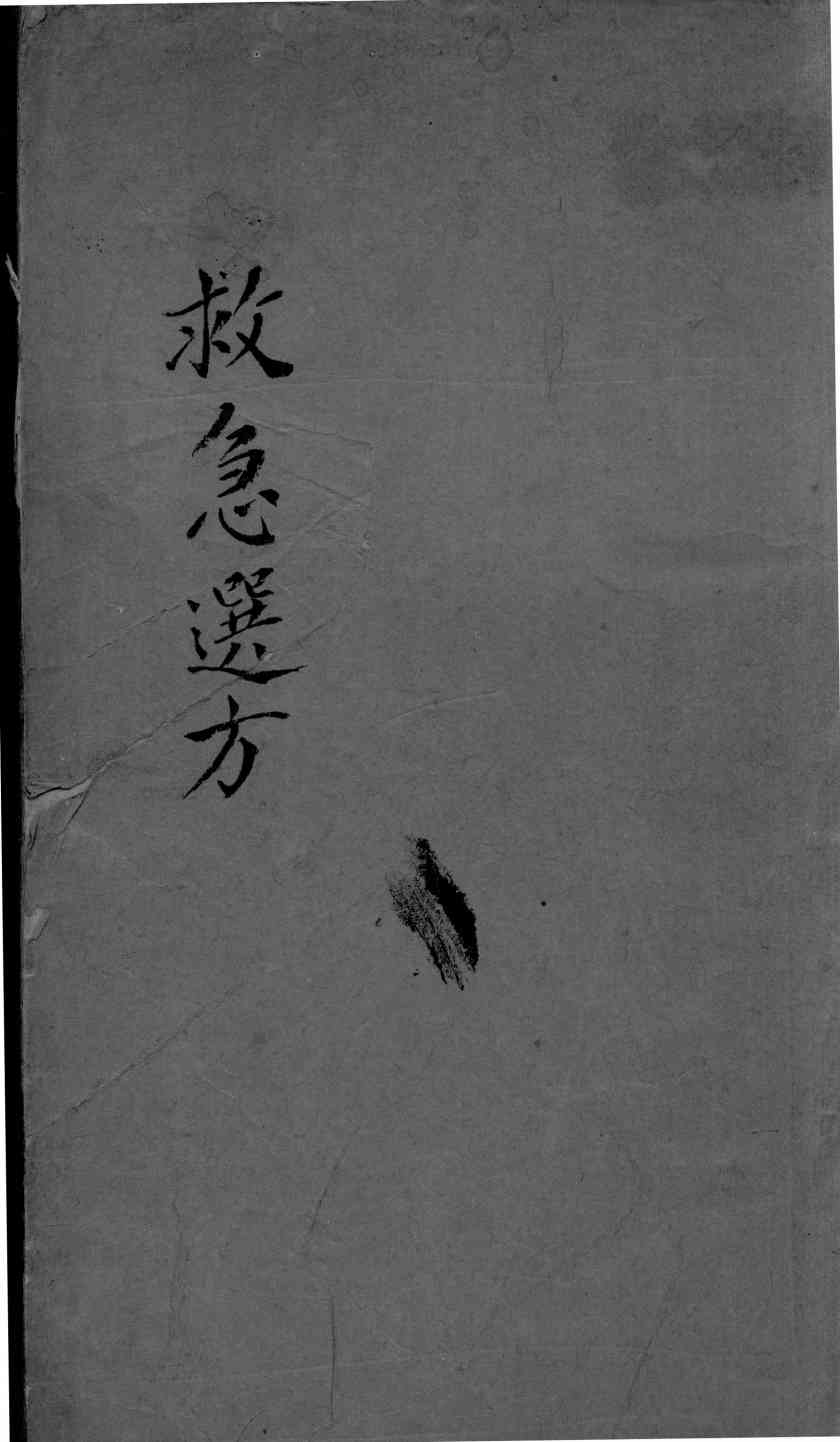 救急選方